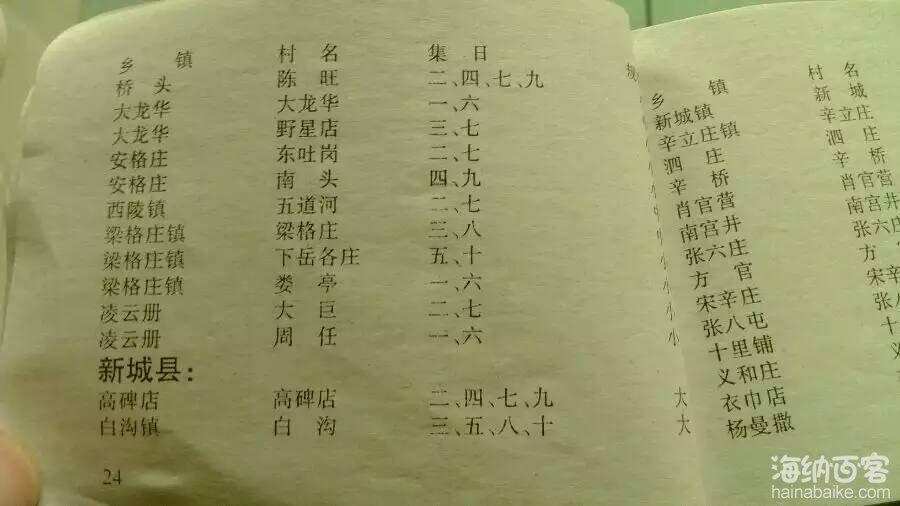 乡 镇 村 名 集 日
桥 头 陈 旺 二、四、七、九
大龙华 大龙华 一、六
大龙华 野星店 三、七
安格庄 东吐岗 二、七
安格庄 南 头 四、九
西陵镇 五道河 二、七
梁格庄镇 梁格庄 三、八
梁格庄镇 下岳各庄 五、十
梁格庄镇 娄 亭 一、六
凌云册 大 巨 二、七
凌云册 周 任 一、六
新城县：
高碑店 高碑店 二、四、七、九
白沟镇 白 沟 三、五、八、十
24
乡 镇 村 名
新城镇 新 城
辛立庄镇 辛立庄
泗 庄 泗 庄
辛 桥 辛 桥
肖官营 肖官营
南宫井 南宫井
张六庄 张六庄
方 官 方
宋辛庄 宋辛
小 张八屯 张八
小 十里铺 十
义和庄
大 衣巾店
大 杨曼撒
海纳百客
hainabaike.com